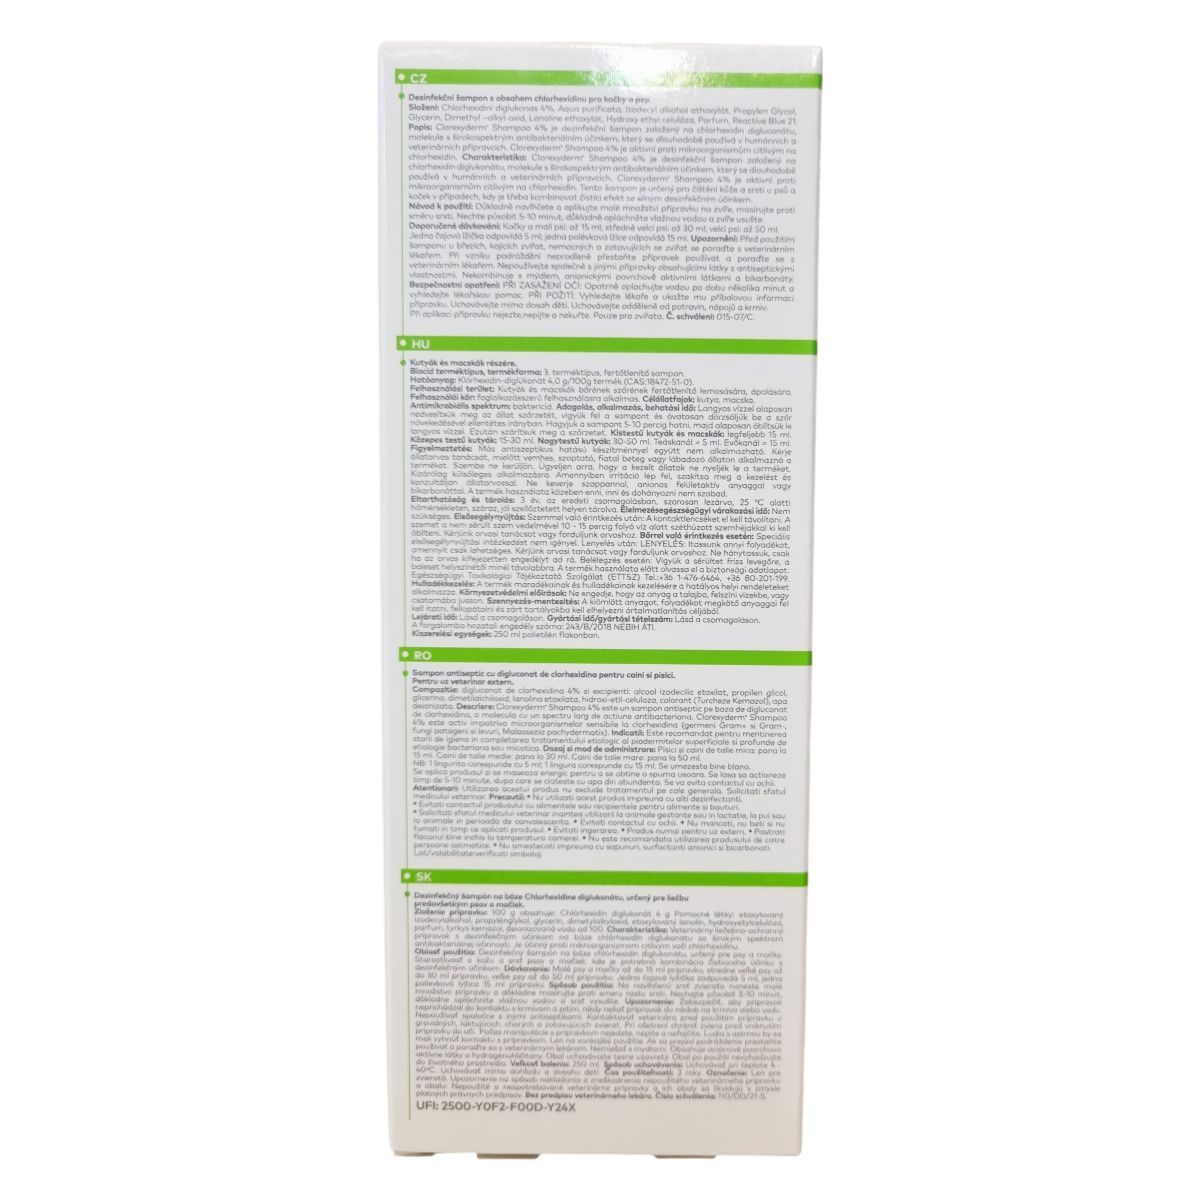 CZ
Desinfekční šampon s obsahem chlorhexidinu pro kočky a psy.
Složení: Chlorhexidini diglukonas 4%, Aqua purificata, Isodecyl alkohol athoxylát, Propylen Glycol,
Glycerin, Dimethyl –alkyl-oxid, Lanoline ethoxylát, Hydroxy ethyl celulóza, Parfum, Reactive Blue 21.
Popis: Clorexyderm® Shampoo 4% je dezinfekční šampon založený na chlorhexidin digluconátu,
molekule s širokospektrým antibakteriálním účinkem, který se dlouhodobě používá v humánních a
veterinárních přípravcích. Clorexyderm® Shampoo 4% je aktivní proti mikroorganismům citlivým na
chlorhexidin. Charakteristika: Clorexyderm® Shampoo 4% je desinfekční šampon založený na
chlorhexidin diglukonátu, molekule s širokospektrým antibakteriálním účinkem, který se dlouhodobě
používá v humánních a veterinárních přípravcích. Clorexyderm® Shampoo 4% je aktivní proti
mikroorganismům citlivým na chlorhexidin. Tento šampon je určený pro čištění kůže a srsti u psů a
koček v případech, kdy je třeba kombinovat čistící efekt se silným desinfekčním účinkem.
Návod k použití: Důkladně navlhčete a aplikujte malé množství přípravku na zvíře, masírujte proti
směru srsti. Nechte působit 5-10 minut, důkladně opláchněte vlažnou vodou a zvíře usušte.
Doporučené dávkování: Kočky a malí psi: až 15 ml; středně velcí psi: až 30 ml; velcí psi: až 50 ml.
Jedna čajová lžička odpovídá 5 ml; jedna polévková lžíce odpovídá 15 ml. Upozornění: Před použitím
šamponu u březích, kojících zvířat, nemocných a zotavujících se zvířat se poraďte s veterinárním
lékařem. Při vzniku podráždění neprodleně přestaňte přípravek používat a poraďte se s
veterinárním lékařem. Nepoužívejte společně s jinými přípravky obsahujícími látky s antiseptickými
vlastnostmi. Nekombinuje s mýdlem, anionickými povrchově aktivními látkami a bikarbonáty.
Bezpečnostní opatření: PŘI ZASAŽENÍ OČÍ: Opatrně oplachujte vodou po dobu několika minut a
vyhledejte lékařskou pomoc. PŘI POŽITÍ: Vyhledejte lékaře a ukažte mu příbalovou informaci
přípravku. Uchovávejte mimo dosah dětí. Uchovávejte odděleně od potravin, nápojů a krmiv.
Při aplikaci přípravku nejezte,nepijte a nekuřte. Pouze pro zvířata. Č. schválení: 015-07/C.
HU
Kutyák és macskák részére.
Biocid terméktípus, termékforma: 3. terméktípus, fertőtlenítő sampon.
Hatóanyag: Klórhexidin-diglükonát 4,0 g/100g termék (CAS:18472-51-0).
Felhasználási terület: Kutyák és macskák bőrének szőrének fertőtlenítő lemosására, ápolására.
Felhasználói kör: foglalkozásszerű felhasználásra alkalmas. Célállatfajok: kutya, macska.
Antimikrobiális spektrum: baktericid. Adagolás, alkalmazás, behatási idő: Langyos vízzel alaposan
nedvesítsük meg az állat szőrzetét, vigyük fel a sampont és óvatosan dörzsöljük be a szőr
növekedésével ellentétes irányban. Hagyjuk a sampont 5-10 percig hatni, majd alaposan öblítsük le
langyos vízzel. Ezután szárítsuk meg a szőrzetet. Kistestű kutyák és macskák: legfeljebb 15 ml.
Közepes testű kutyák: 15-30 ml. Nagytestű kutyák: 30-50 ml. Teáskanál = 5 ml. Evőkanál = 15 ml.
Figyelmeztetés: Más antiszeptikus hatású készítménnyel együtt nem alkalmazható. Kérje
állatorvos tanácsát, mielőtt vemhes, szoptató, fiatal beteg vagy lábadozó állaton alkalmazná a
terméket. Szembe ne kerüljön. Ügyeljen arra, hogy a kezelt állatok ne nyeljék le a terméket.
Kizárólag külsőleges alkalmazásra. Amennyiben irritáció lép fel, szakítsa meg a kezelést és
konzultáljon állatorvossal. Ne keverje szappannal, anionos felületaktív anyaggal vagy
bikarbonáttal. A termék használata közeben enni, inni és dohányozni nem szabad.
Eltarthatóság és tárolás: 3 év, az eredeti csomagolásban, szorosan lezárva, 25 °C alatti
hőmérsékleten, száraz, jól szellőztetett helyen tárolva. Élelmezésegészségügyi várakozási idő: Nem
szükséges. Elsősegélynyújtás: Szemmel való érintkezés után: A kontaktlencséket el kell távolítani. A
szemet a nem sérült szem védelmével 10 - 15 percig folyó víz alatt széthúzott szemhéjakkal ki kell
öblíteni. Kérjünk orvosi tanácsot vagy forduljunk orvoshoz. Bőrrel való érintkezés esetén: Speciális
elsősegélynyújtási intézkedést nem igényel. Lenyelés után: LENYELÉS: Itassunk annyi folyadékot,
amennyit csak lehetséges. Kérjünk orvosi tanácsot vagy forduljunk orvoshoz. Ne hánytassuk, csak
ha az orvos kifejezetten engedélyt ad rá. Belélegzés esetén: Vigyük a sérültet friss levegőre, a
baleset helyszínétől minél távolabbra. A termék használata előtt olvassa el a biztonsági adatlapot.
Egészségügyi Toxikológiai Tájékoztató Szolgálat (ETTSZ) Tel.:+36 1-476-6464, +36 80-201-199.
Hulladékkezelés: A termék maradékainak és hulladékainak kezelésére a hatályos helyi rendeleteket
alkalmazza. Környezetvédelmi előírások: Ne engedje, hogy az anyag a talajba, felszíni vizekbe, vagy
csatornába jusson. Szennyezés-mentesítés: A kiömlött anyagot, folyadékot megkötő anyaggal fel
kell itatni, fellapátolni és zárt tartályokba kell elhelyezni ártalmatlanítás céljából.
Lejárati idő: Lásd a csomagoláson. Gyártási idő/gyártási tételszám: Lásd a csomagoláson.
A forgalomba hozatali engedély száma: 243/B/2018 NÉBIH ÁTI.
Kiszerelési egységek: 250 ml polietilén flakonban.
RO
Sampon antiseptic cu digluconat de clorhexidina pentru caini si pisici.
Pentru uz veterinar extern.
Compozitie: digluconat de clorhexidina 4% si excipienti: alcool izodecilic etoxilat, propilen glicol,
glicerina, dimetilalchiloxid, lanolina etoxilata, hidroxi-etil-celuloza, colorant (Turcheze Kemazol), apa
deionizata. Descriere: Clorexyderm® Shampoo 4% este un sampon antiseptic pe baza de digluconat
de clorhexidina, o molecula cu un spectru larg de actiune antibacteriana. Clorexyderm® Shampoo
4% este activ impotriva microorganismelor sensibile la clorhexidina (germeni Gram+ si Gram-,
fungi patogeni si levuri, Malassezia pachydermatis). Indicatii: Este recomandat pentru mentinerea
starii de igiena in completarea tratamentului etiologic al piodermitelor superficiale si profunde de
etiologie bacteriana sau micotica. Dozaj si mod de administrare: Pisici si caini de talie mica: pana la
15 ml. Caini de talie medie: pana la 30 ml. Caini de talie mare: pana la 50 ml.
NB: 1 lingurita corespunde cu 5 ml; 1 lingura corespunde cu 15 ml. Se umezeste bine blana.
Se aplica produsul si se maseaza energic pentru a se obtine o spuma usoara. Se lasa sa actioneze
timp de 5-10 minute, dupa care se clateste cu apa din abundenta. Se va evita contactul cu ochii.
Atentionari: Utilizarea acestui produs nu exclude tratamentul pe cale generala. Solicitati sfatul
medicului veterinar. Precautii: • Nu utilizati acest produs impreuna cu alti dezinfectanti.
• Evitati contactul produsului cu alimentele sau recipientele pentru alimente si bauturi.
• Solicitati sfatul medicului veterinar inaintea utilizarii la animale gestante sau in lactatie, la pui sau
la animale in perioada de convalescenta. • Evitati contactul cu ochii. • Nu mancati, nu beti si nu
fumati in timp ce aplicati produsul. • Evitati ingerarea. • Produs numai pentru uz extern. • Pastrati
flaconul bine inchis la temperatura camerei. • Nu este recomandata utilizarea produsului de catre
persoane astmatice. • Nu amestecati impreuna cu sapunuri, surfactanti anionici si bicarbonati.
Lot/valabilitate:verificati ambalaj.
SK
Dezinfekčný šampón na báze Chlorhexidine diglukonátu, určený pre liečbu
predovšetkým psov a mačiek.
Zloženie prípravku: 100 g obsahuje: Chlórhexidín diglukonát 4 g Pomocné látky: etoxylovaný
izodecylalkohol, propylénglykol, glycerín, dimetylalkyloxid, etoxylovaný lanolín, hydroxyetylcelulóza,
parfum, tyrkys kemazol, deionizovaná voda ad 100. Charakteristika: Veterinárny liečebno-ochranný
prípravok s dezinfekčným účinkom na báze chlórhexidín diglukonátu so širokým spektrom
antibakteriálnej účinnosti. Je účinný proti mikroorganizmom citlivým voči chlórhexidínu.
Oblasť použitia: Dezinfekčný šampón na báze chlórhexidín diglukonátu, určený pre psy a mačky.
Starostlivosť o kožu a srsť psov a mačiek, kde je potrebná kombinácia čistiaceho účinku s
dezinfekčným účinkom. Dávkovanie: Malé psy a mačky až do 15 ml prípravku, stredne veľké psy až
do 30 ml prípravku, veľké psy až do 50 ml prípravku. Jedna čajová lyžička zodpovedá 5 ml, jedna
polievková lyžica 15 ml prípravku Spôsob použitia: Na navlhčenú srsť zvieraťa naneste malé
množstvo prípravku a dôkladne masírujte proti smeru rastu srsti. Nechajte pôsobiť 5-10 minút,
dôkladne opláchnite vlažnou vodou a srsť vysušte. Upozornenie: Zabezpečiť, aby prípravok
neprichádzal do kontaktu s krmivom a pitím, nikdy neliať prípravok do nádob na krmivo alebo vodu.
Nepoužívať spoločne s inými antiseptikami. Kontaktovať veterinára pred použitím prípravku u
gravidných, laktujúcich, chorých a zotavujúcich zvierat. Pri ošetrení chrániť zviera pred vniknutím
prípravku do očí. Počas manipulácie s prípravkom nejedzte, nepite a nefajčite. Ľudia s astmou by sa
mali vyhnúť kontaktu s prípravkom. Len na vonkajšie použitie. Ak sa prejaví podráždenie prestaňte
používať a poraďte sa s veterinárnym lekárom. Nemiešať s mydlami. Obsahuje anionové povrchovo
aktívne látky a hydrogénuhličitany. Obal uchovávajte tesne uzavretý. Obal po použití nevyhadzujte
do životného prostredia. Veľkosť balenia: 250 ml. Spôsob uchovávania: Uchovávať pri teplote 4 -
40°C. Uchovávať mimo dohľadu a dosahu detí. Čas použiteľnosti: 3 roky. Označenie: Len pre
zvieratá. Upozornenie na spôsob nakladania a zneškodnenia nepoužitého veterinárneho prípravku
a obalu: Nepoužité a nespotrebované veterinárne prípravky a ich obaly sa likvidujú v zmysle
platných právnych predpisov. Bez predpisu veterinárneho lekára. Číslo schválenia: 110/DD/21-S.
UFI: 2500-Y0F2-F00D-Y24X